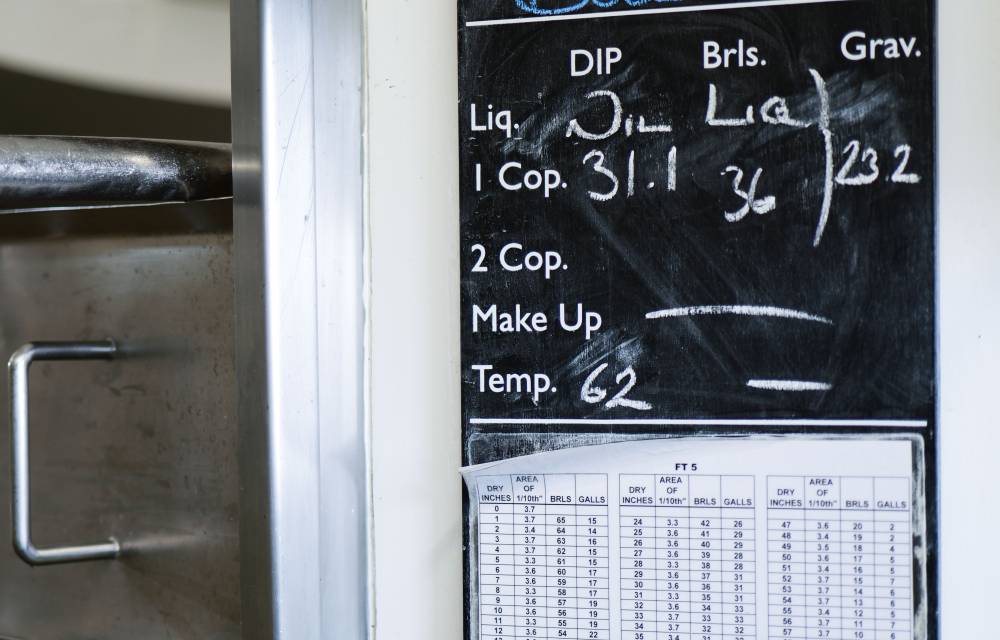 DIP Brls. Grav.
Liq. NIL LIQ
1 Cop. 31.1 36 23.2
2 Cop.
Make Up
Temp. 62
FT 5
DRY INCHES AREA OF 1/10th" BRLS GALLS
0 3.7
1 3.7 65 15
2 3.4 64 14
3 3.7 63 16
4 3.7 62 15
5 3.3 61 15
6 3.6 60 17
7 3.6 59 17
8 3.3 58 17
9 3.6 57 19
10 3.6 56 19
11 3.3 55 19
12 3.6 54 22
DRY INCHES AREA OF 1/10th" BRLS GALLS
24 3.3 42 26
25 3.6 41 29
26 3.6 40 29
27 3.3 39 28
28 3.6 38 28
29 3.6 37 31
30 3.6 36 31
31 3.3 35 31
32 3.6 34 33
33 3.6 33 33
34 3.7 32 32
35 3.4
DRY INCHES AREA OF 1/10th" BRLS GALLS
47 3.6 20 2
48 3.4 19 2
49 3.5 18 4
50 3.6 17 5
51 3.4 16 5
52 3.7 15 7
53 3.7 14 6
54 3.7 13 6
55 3.4 12 5
56 3.7 11 7
57 3.7 10 6